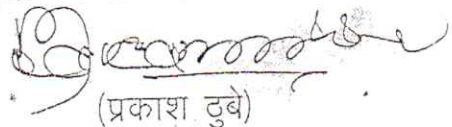 (प्रकाश ठुबे)